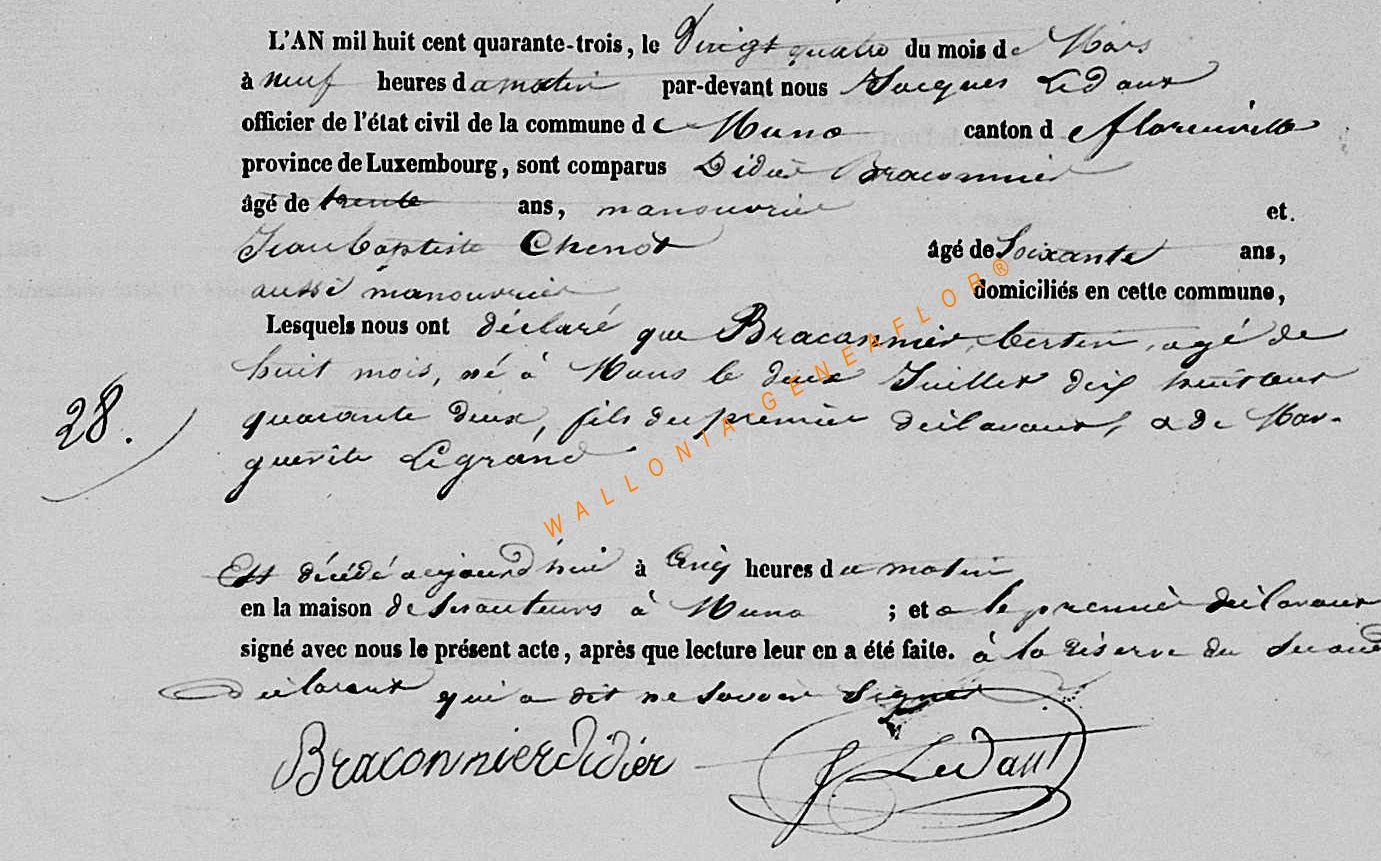 L'AN mil huit cent quarante-trois, le Vingt quatre du mois de Mars
à neuf heures du matin par-devant nous Jacques Ledant
officier de l'état civil de la commune de Muno canton de florenville
province de Luxembourg, sont comparus Didier Braconnier
âgé de trente ans, manouvrier et
Jean baptiste Chenot âgé de Soixante ans,
aussi manouvrier domiciliés en cette commune,
Lesquels nous ont déclaré que Braconnier, bertin, agé de
huit mois, né à Muno le deux Juillet dix huit cent
quarante deux, fils du premier déclarant, & de Mar-
guerite Legrand
28.
Est décédé aujourd'hui à Cinq heures du matin
en la maison de à Muno ; et a le premier déclarant
signé avec nous le présent acte, après que lecture leur en a été faite. à la réserve du Second
déclarant qui a dit ne Savoir Signer
Braconnier Didier J. Ledant
WALLONIA-GENEAFLOR®